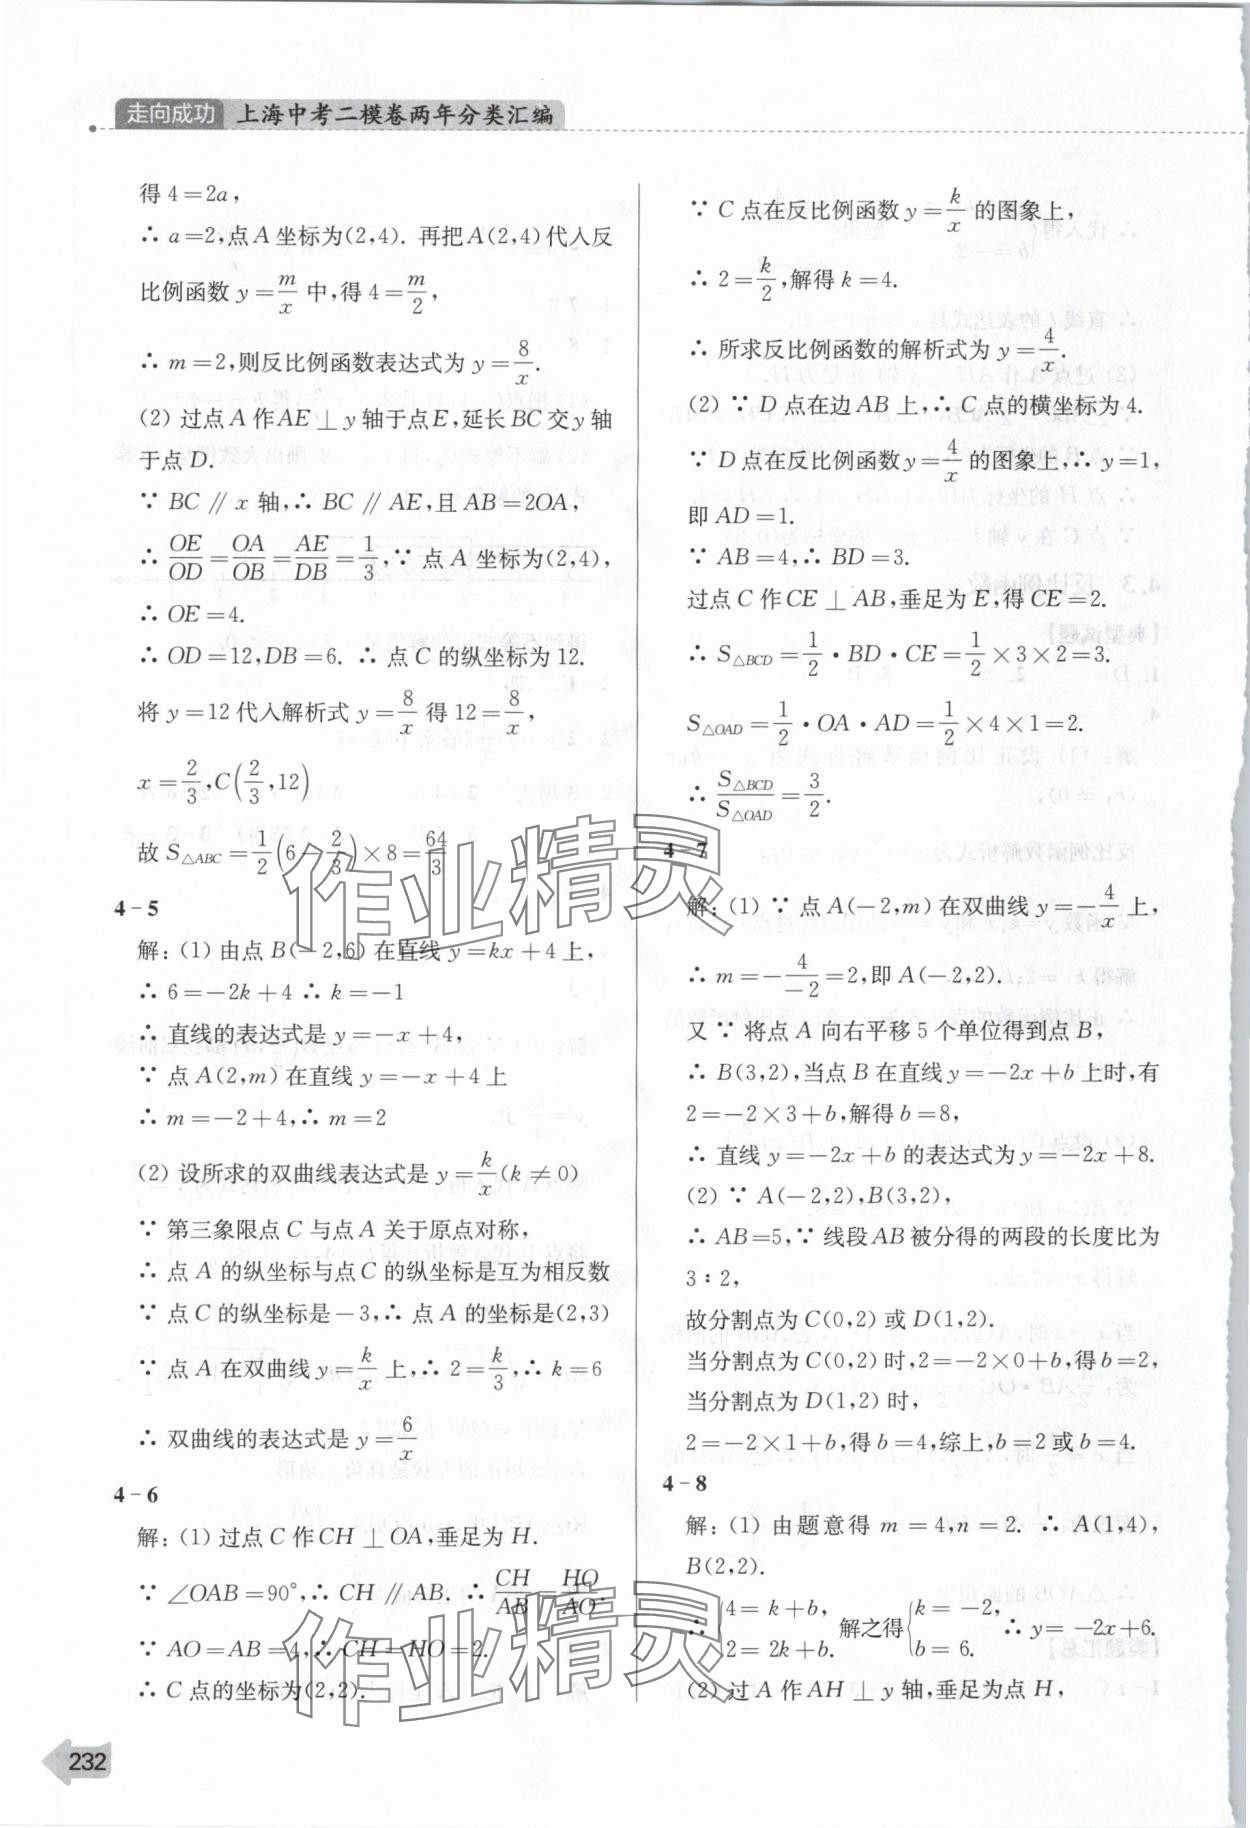 走向成功 上海中考二模卷两年分类汇编
得 4=2a,
∴ a=2,点 A 坐标为(2,4). 再把A(2,4)代入反
比例函数 y=m/x 中,得 4=m/2,
∴ m=2,则反比例函数表达式为 y=8/x.
(2) 过点 A 作 AE⊥y 轴于点 E,延长 BC 交 y 轴
于点 D.
∵ BC∥x 轴,∴ BC∥AE,且 AB=2OA,
∴ OE/OD=OA/OB=AE/DB=1/3,∵ 点 A 坐标为(2,4),
∴ OE=4.
∴ OD=12,DB=6. ∴ 点 C 的纵坐标为 12.
将 y=12 代入解析式 y=8/x 得 12=8/x,
x=2/3,C(2/3,12)
故 S△ABC=1/2(6-2/3)×8=64/3
4-5
解:(1) 由点 B(-2,6) 在直线 y=kx+4 上,
∴ 6=-2k+4 ∴ k=-1
∴ 直线的表达式是 y=-x+4,
∵ 点 A(2,m) 在直线 y=-x+4 上
∴ m=-2+4,∴ m=2
(2) 设所求的双曲线表达式是 y=k/x(k≠0)
∵ 第三象限点 C 与点 A 关于原点对称,
∴ 点 A 的纵坐标与点 C 的纵坐标是互为相反数
∵ 点 C 的纵坐标是-3,∴ 点 A 的坐标是(2,3)
∵ 点 A 在双曲线 y=k/x 上,∴ 2=k/3,∴ k=6
∴ 双曲线的表达式是 y=6/x
4-6
解:(1) 过点 C 作 CH⊥OA,垂足为 H.
∵ ∠OAB=90°,∴ CH∥AB. ∴ CH/AB=HO/AO.
∵ AO=AB=4,∴ CH=HO=2.
∴ C 点的坐标为(2,2).
∵ C 点在反比例函数 y=k/x 的图象上,
∴ 2=k/2,解得 k=4.
∴ 所求反比例函数的解析式为 y=4/x.
(2) ∵ D 点在边 AB 上,∴ C 点的横坐标为 4.
∵ D 点在反比例函数 y=4/x 的图象上,∴ y=1,
即 AD=1.
∵ AB=4,∴ BD=3.
过点 C 作 CE⊥AB,垂足为 E,得 CE=2.
∴ S△BCD=1/2·BD·CE=1/2×3×2=3.
S△OAD=1/2·OA·AD=1/2×4×1=2.
∴ S△BCD/S△OAD=3/2.
4-7
解:(1) ∵ 点 A(-2,m) 在双曲线 y=-4/x 上,
∴ m=-4/-2=2,即 A(-2,2).
又 ∵ 将点 A 向右平移 5 个单位得到点 B,
∴ B(3,2),当点 B 在直线 y=-2x+b 上时,有
2=-2×3+b,解得 b=8,
∴ 直线 y=-2x+b 的表达式为 y=-2x+8.
(2) ∵ A(-2,2),B(3,2),
∴ AB=5,∵ 线段 AB 被分得的两段的长度比为
3∶2,
故分割点为 C(0,2) 或 D(1,2).
当分割点为 C(0,2) 时,2=-2×0+b,得 b=2,
当分割点为 D(1,2) 时,
2=-2×1+b,得 b=4,综上,b=2或 b=4.
4-8
解:(1) 由题意得 m=4,n=2. ∴ A(1,4),
B(2,2).
∴ {4=k+b, 2=2k+b. 解之得{k=-2, b=6. ∴ y=-2x+6.
(2) 过 A 作 AH⊥y 轴,垂足为点 H,
232
作业精灵
作业精灵